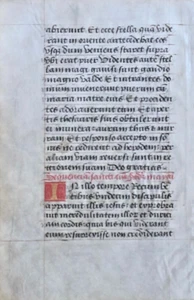 abierunt Et ecce stella qua vide
rant in oriente antecedebat eos
usque dum veniens staret supra
ubi erat puer Videntes aute stel
lam magi gavisi sunt gaudio
magno valde Et intrantes do
mum invenerunt puerum cu
maria matre eius Et
tes adoraverunt eum Et aper
tis thesauris suis obtulerunt
ei munera aurum thus et mir
ram Et responso accepto in som
nis ne redirent ad herodem per
aliam viam reversi sunt in re
gionem suam Deo gratias
Sequencia sancti
In illo tempore Recumbe
tibus undecim discipulis
apparuit illis et expro
bravit incredulitatem illor et duriti
am cordis quia his qui viderant
eum resurrexisse non crediderant